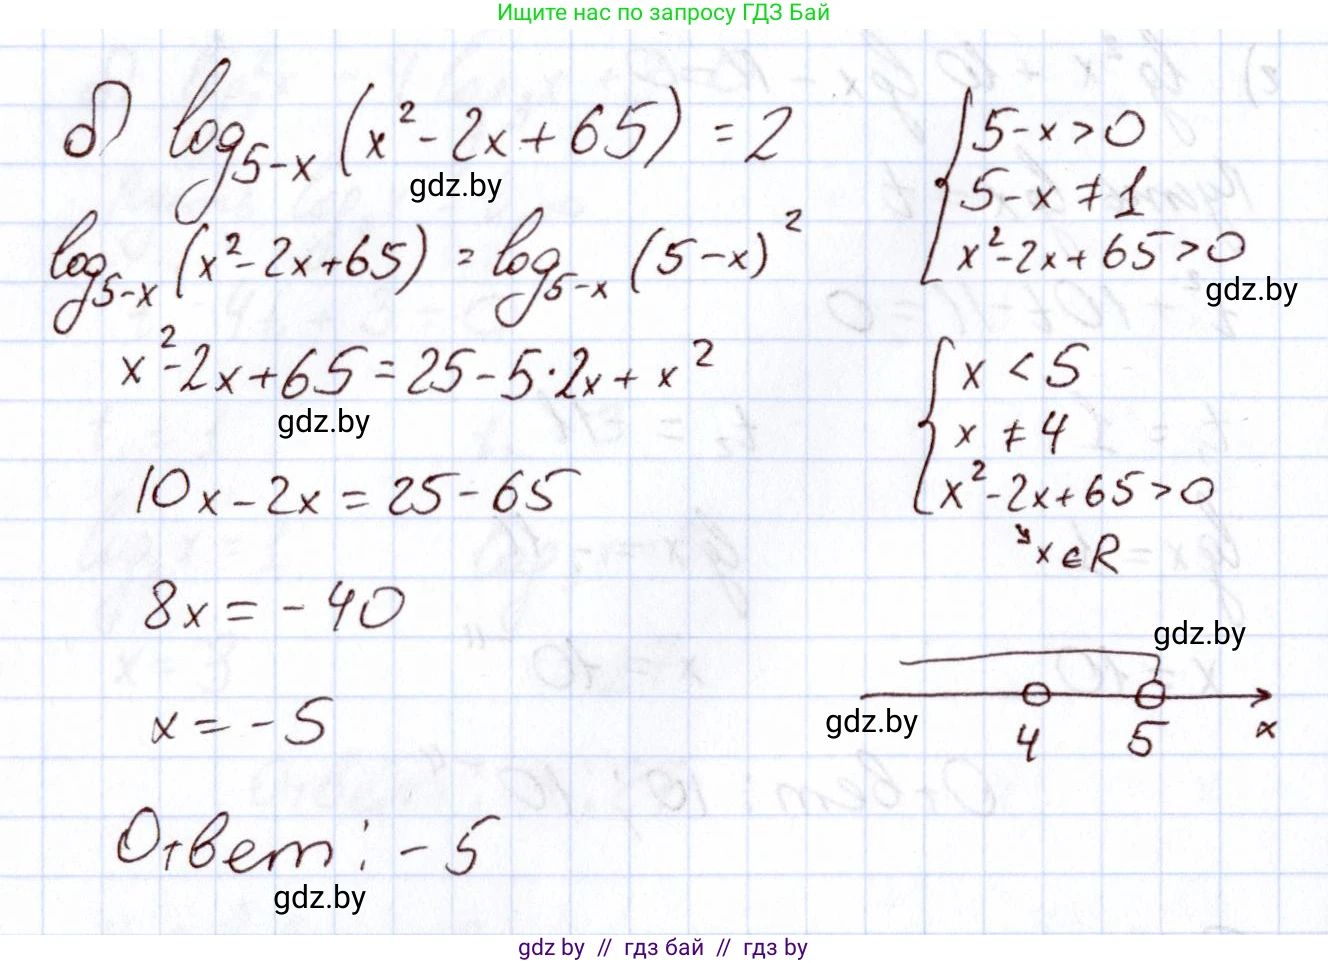 Ищите нас по запросу ГДЗ Бай
б) log₅₋ₓ (x² - 2x + 65) = 2
gdz.by
log₅₋ₓ (x² - 2x + 65) = log₅₋ₓ (5 - x)²
x² - 2x + 65 = 25 - 5·2x + x²
gdz.by
10x - 2x = 25 - 65
8x = - 40
x = - 5
Ответ: - 5
gdz.by
5 - x > 0
5 - x ≠ 1
x² - 2x + 65 > 0
gdz.by
x < 5
x ≠ 4
x² - 2x + 65 > 0
x ∈ R
gdz.by
gdz.by
4 5 x
gdz by // гдз бай // гдз by